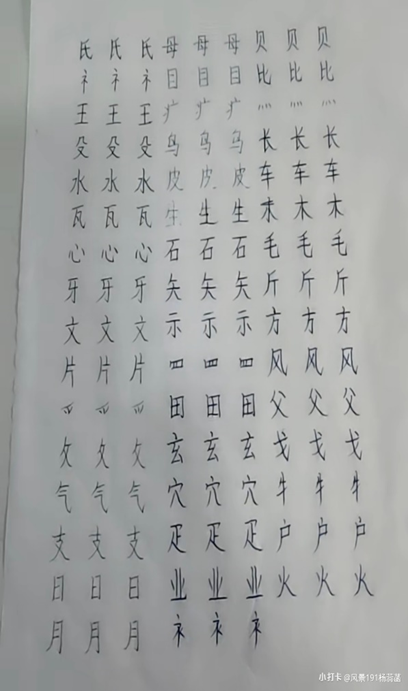 氏 氏 氏 母 母 母 贝 贝 贝
礻 礻 礻 目 目 目 比 比 比
王 王 王 疒 疒 疒 灬 灬 灬
殳 殳 殳 鸟 鸟 鸟 长 长 长
水 水 水 皮 皮 皮 车 车 车
瓦 瓦 瓦 生 生 生 木 木 木
心 心 心 石 石 石 毛 毛 毛
牙 牙 牙 矢 矢 矢 斤 斤 斤
文 文 文 示 示 示 方 方 方
片 片 片 罒 罒 罒 风 风 风
爫 爫 爫 田 田 田 父 父 父
攵 攵 攵 玄 玄 玄 戈 戈 戈
气 气 气 穴 穴 穴 牛 牛 牛
支 支 支 疋 疋 疋 户 户 户
日 日 日 业 业 业 火 火 火
月 月 月 衤 衤 衤
小打卡